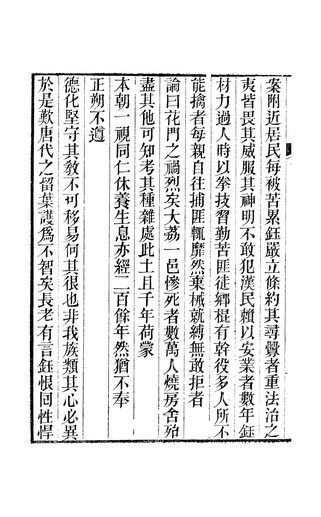 案附近居民每被苦累鈺嚴立條約其尋釁者重法治之
夷皆畏其威服其神明不敢犯漢民賴以安業者數年鈺
材力過人時以拳技習勤苦匪徒鄉棍有幹役多人所不
能擒者每親自往捕匪輒靡然棄械就縛無敢拒者
論曰花門之禍烈矣大荔一邑慘死者數萬人燒房舍殆
盡其他可知考其種雜處此土且千年荷蒙
本朝一視同仁休養生息亦經二百餘年然猶不奉
正朔不遵
德化堅守其教不可移易何其很也非我族類其心必異
於是歎唐代之留葉護爲不智矣長老有言鈺恨回性悍